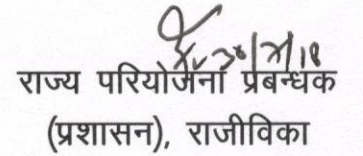 राज्य परियोजना प्रबन्धक
(प्रशासन), राजीविका